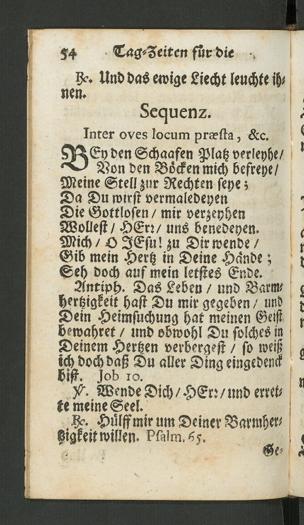 54 Tag-Zeiten für die
℟. Und das ewige Liecht leuchte ih-
nen.
Sequenz.
Inter oves locum præsta, &c.
BEy den Schaafen Platz verleyhe/
Von den Böcken mich befreye/
Meine Stell zur Rechten seye;
Da Du wirst vermaledeyen
Die Gottlosen/ mir verzeyhen
Wollest/ HErr/ uns benedeyen.
Mich/ O JEsu! zu Dir wende/
Gib mein Hertz in Deine Hände;
Seh doch auf mein letstes Ende.
Antiph. Das Leben/ und Barm-
hertzigkeit hast Du mir gegeben/ und
Dein Heimsuchung hat meinen Geist
bewahret/ und obwohl Du solches in
Deinem Hertzen verbergest/ so weiß
ich doch daß Du aller Ding eingedenck
bist. Job 10.
℣. Wende Dich/ HErr/ und erret-
te meine Seel.
℟. Hülff mir um Deiner Barmher-
tzigkeit willen. Psalm. 65.
Ge-